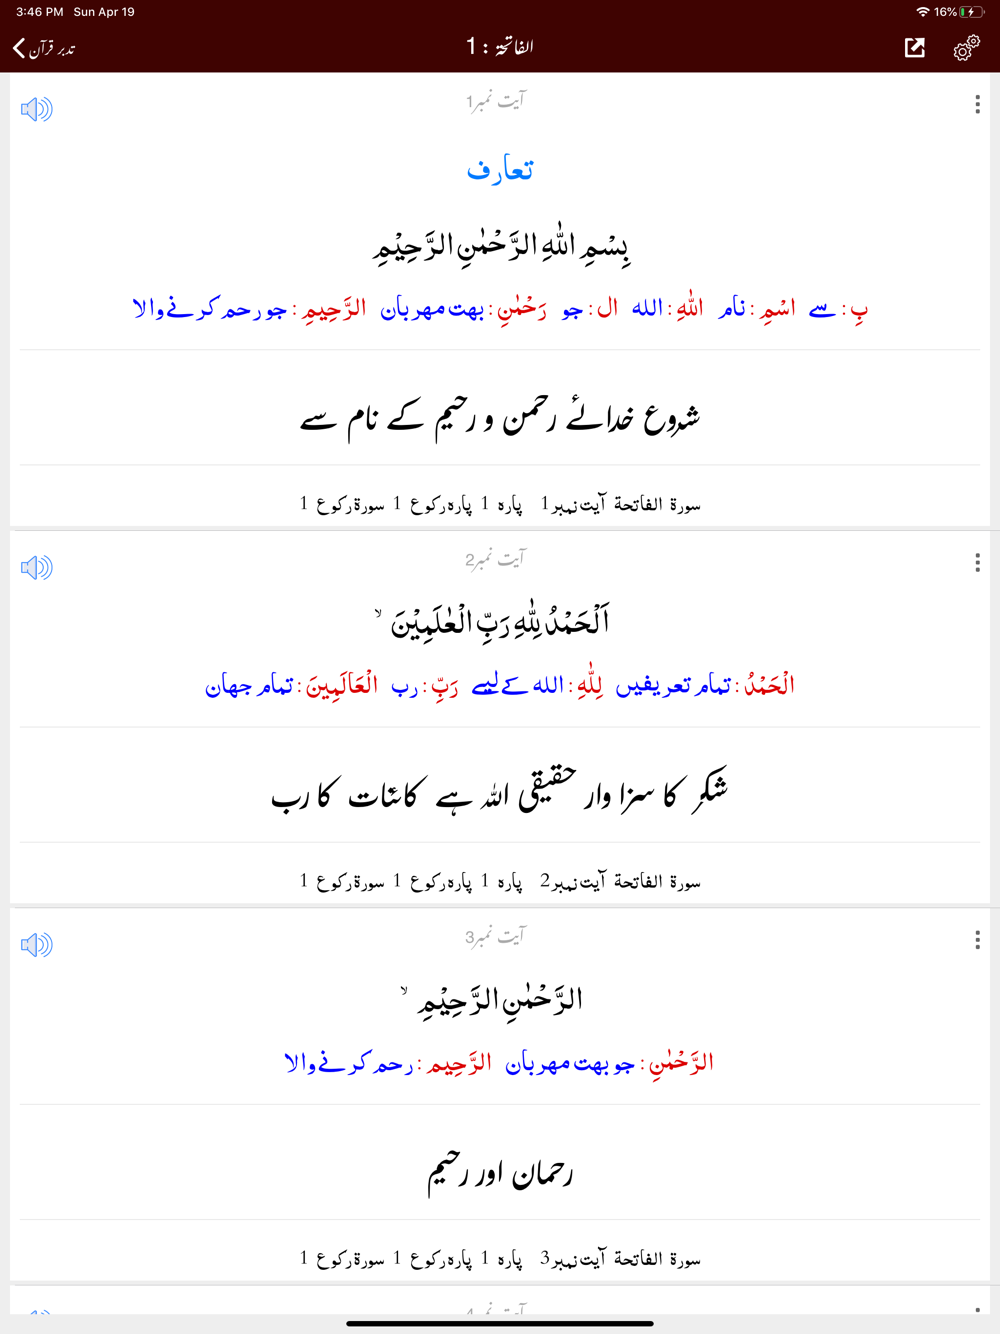 3:46 PM Sun Apr 19 16%
تدبر قرآن الفاتحۃ : 1
آیت نمبر1
تعارف
بِسْمِ اللّٰهِ الرَّحْمٰنِ الرَّحِيْمِ
بِ : سے اسْمِ : نام اللّٰهِ : الله ال : جو رَحْمٰنِ : بہت مہربان الرَّحِيمِ : جو رحم کرنے والا
شروع خدائے رحمن و رحیم کے نام سے
سورۃ الفاتحۃ آیت نمبر1 پارہ 1 پارہ رکوع 1 سورۃ رکوع 1
آیت نمبر2
اَلْحَمْدُ لِلّٰهِ رَبِّ الْعٰلَمِيْنَ ۙ
الْحَمْدُ : تمام تعریفیں لِلّٰهِ : الله کے لیے رَبِّ : رب الْعَالَمِينَ : تمام جہان
شکر کا سزا وار حقیقی اللہ ہے کائنات کا رب
سورۃ الفاتحۃ آیت نمبر2 پارہ 1 پارہ رکوع 1 سورۃ رکوع 1
آیت نمبر3
الرَّحْمٰنِ الرَّحِيْمِ ۙ
الرَّحْمٰنِ : جو بہت مہربان الرَّحِيمِ : رحم کرنے والا
رحمان اور رحیم
سورۃ الفاتحۃ آیت نمبر3 پارہ 1 پارہ رکوع 1 سورۃ رکوع 1
آیت نمبر4